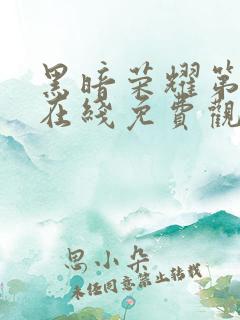 黑暗荣耀第
在线免費觀
思小朵
未经同意禁止转载